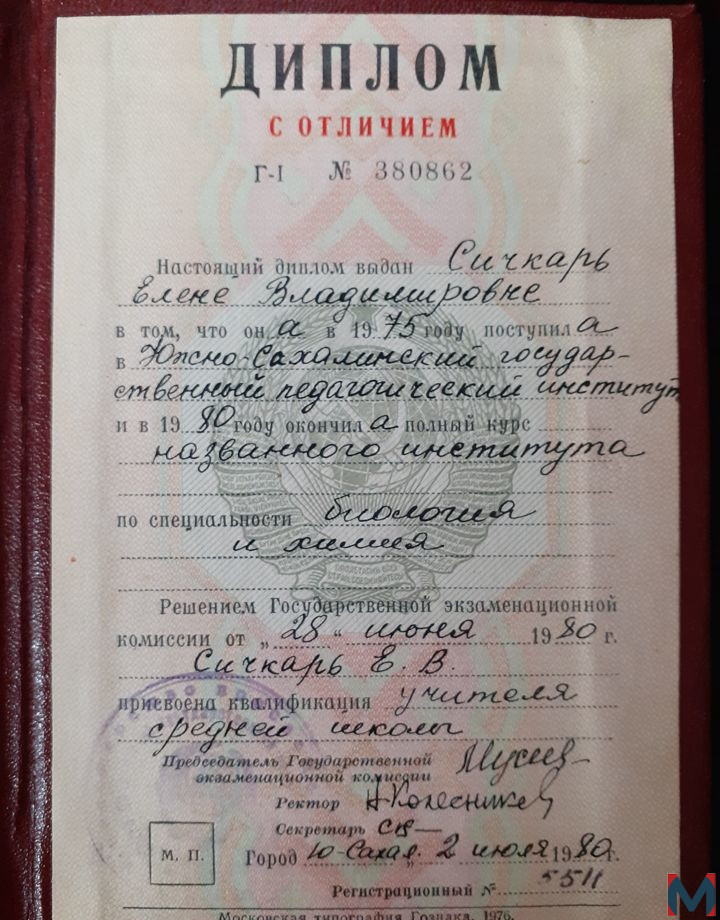 ДИПЛОМ
С ОТЛИЧИЕМ
Г-I № 380862
Настоящий диплом выдан Сичкарь
Елене Владимировне
в том, что он а в 1975 году поступил а
в Южно-Сахалинский государ-
ственный педагогический институт
и в 1980 году окончил а полный курс
названного института
по специальности биология
и химия
Решением Государственной экзаменационной
комиссии от „28" июня 1980 г.
Сичкарь Е. В.
присвоена квалификация учителя
средней школы
Председатель Государственной
экзаменационной комиссии
Ректор
Секретарь
М. П.
Город Ю-Сахал. 2 июля 1980 г.
Регистрационный № 5511
Московская типография Гознака. 1976.
M